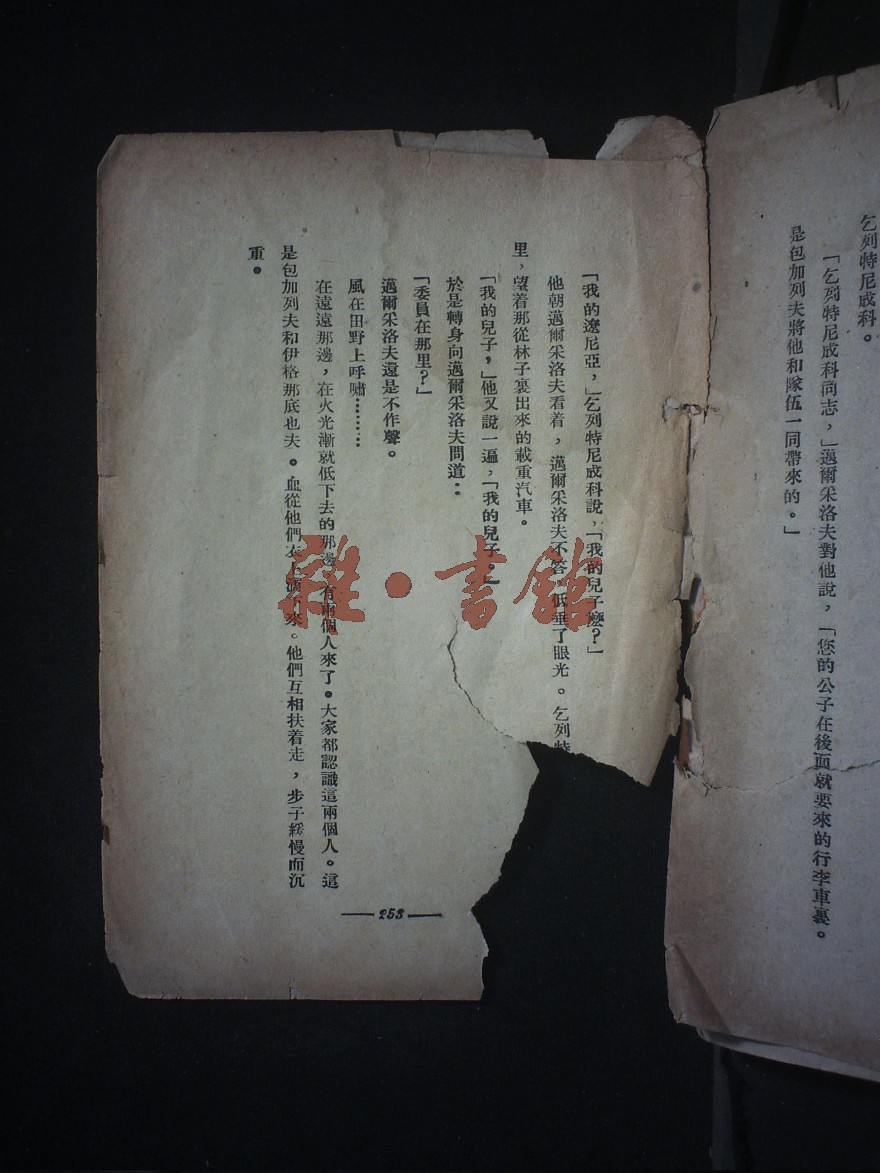 乞列特尼成科。
「乞列特尼成科同志，」邁爾采洛夫對他說，「您的公子在後面就要來的行李車裏。
是包加列夫將他和隊伍一同帶來的。」
「我的遼尼亞，」乞列特尼成科說，「我的兒子麽？」
他朝邁爾采洛夫看着，邁爾采洛夫不答，低垂了眼光。乞列特
里，望着那從林子裏出來的載重汽車。
「我的兒子，」他又說一遍，「我的兒子。」
於是轉身向邁爾采洛夫問道：
「委員在那里？」
邁爾采洛夫還是不作聲。
風在田野上呼嘯………
在遠遠那邊，在火光漸就低下去的那邊，有兩個人來了。大家都認識這兩個人。這
是包加列夫和伊格那底也夫。血從他們衣上滴下來。他們互相扶着走，步子緩慢而沉
重。
253
雜·書館